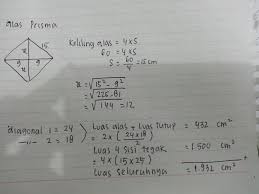 alas Prisma
15
x
9
9
x
Keliling alas = 4 x S
60 = 4 x S
S = 60/4 = 15 cm
x = √15² - 9²
= √225 - 81
= √144 = 12
diagonal 1 = 24
—"— 2 = 18
Luas alas + Luas tutup = 432 cm²
= 2 x (24 x 18 / 2)
Luas 4 sisi tegak = 1.500 cm²
= 4 x (15 x 25)
+
Luas seluruhnya = 1.932 cm²